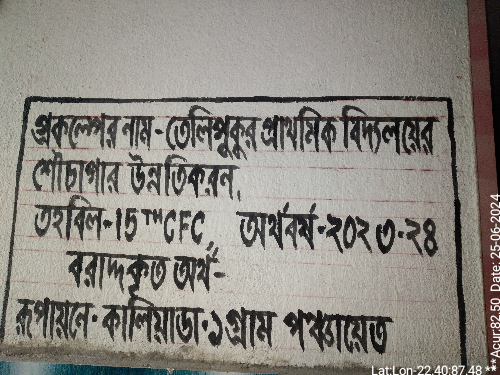 প্রকল্পের নাম - তেলিপুকুর প্রাথমিক বিদ্যলয়ের
শৌচাগার উন্নতিকরন,
তহবিল - 15TH CFC অর্থবর্ষ - ২০২৩-২৪
বরাদ্দকৃত অর্থ :-
রূপায়নে - কালিয়াড়া - ১ গ্রাম পঞ্চায়েত
Lat:Lon-22.40:87.48 ** Acur:82.50 Date: 25-06-2024